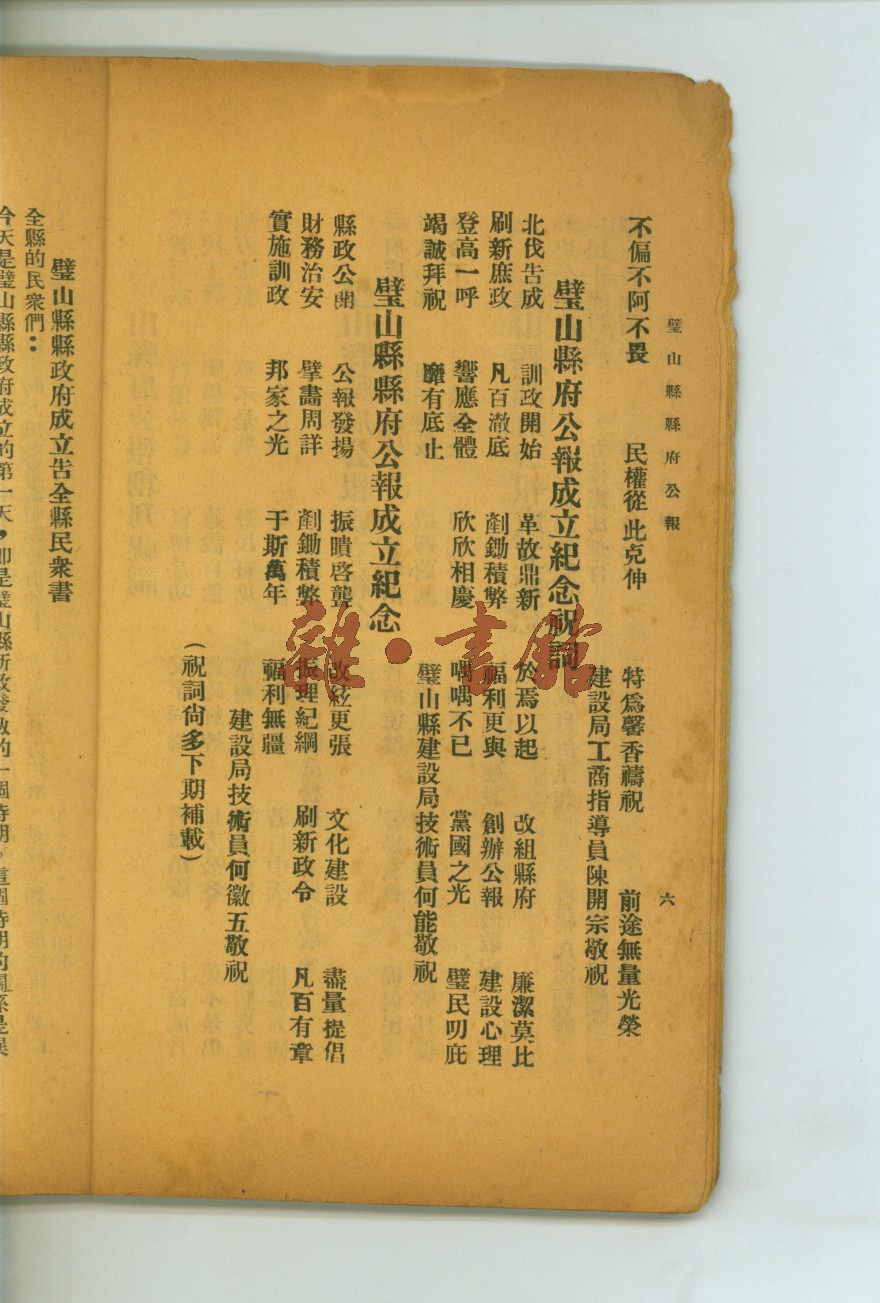 璧山縣縣府公報
六
不偏不阿不畏　民權從此克伸　特爲馨香禱祝　前途無量光榮
建設局工商指導員陳開宗敬祝
璧山縣府公報成立紀念祝詞
北伐告成　訓政開始　革故鼎新　於焉以起　改組縣府　廉潔莫比
刷新庶政　凡百澈底　剷鋤積弊　福利更與　創辦公報　建設心理
登高一呼　響應全體　欣欣相慶　喁喁不已　黨國之光　璧民叨庇
竭誠拜祝　靡有底止
璧山縣建設局技術員何能敬祝
璧山縣縣府公報成立紀念
縣政公開　公報發揚　振聵啓聾　改絃更張　文化建設　盡量提倡
財務治安　擘畵周詳　剷鋤積弊　振理紀綱　刷新政令　凡百有章
實施訓政　邦家之光　于斯萬年　福利無疆
建設局技術員何徽五敬祝
（祝詞尙多下期補載）
璧山縣縣政府成立吿全縣民衆書
全縣的民衆們：
今天是璧山縣縣政府成立的第一天，卽是璧山縣新政發
雜·書館